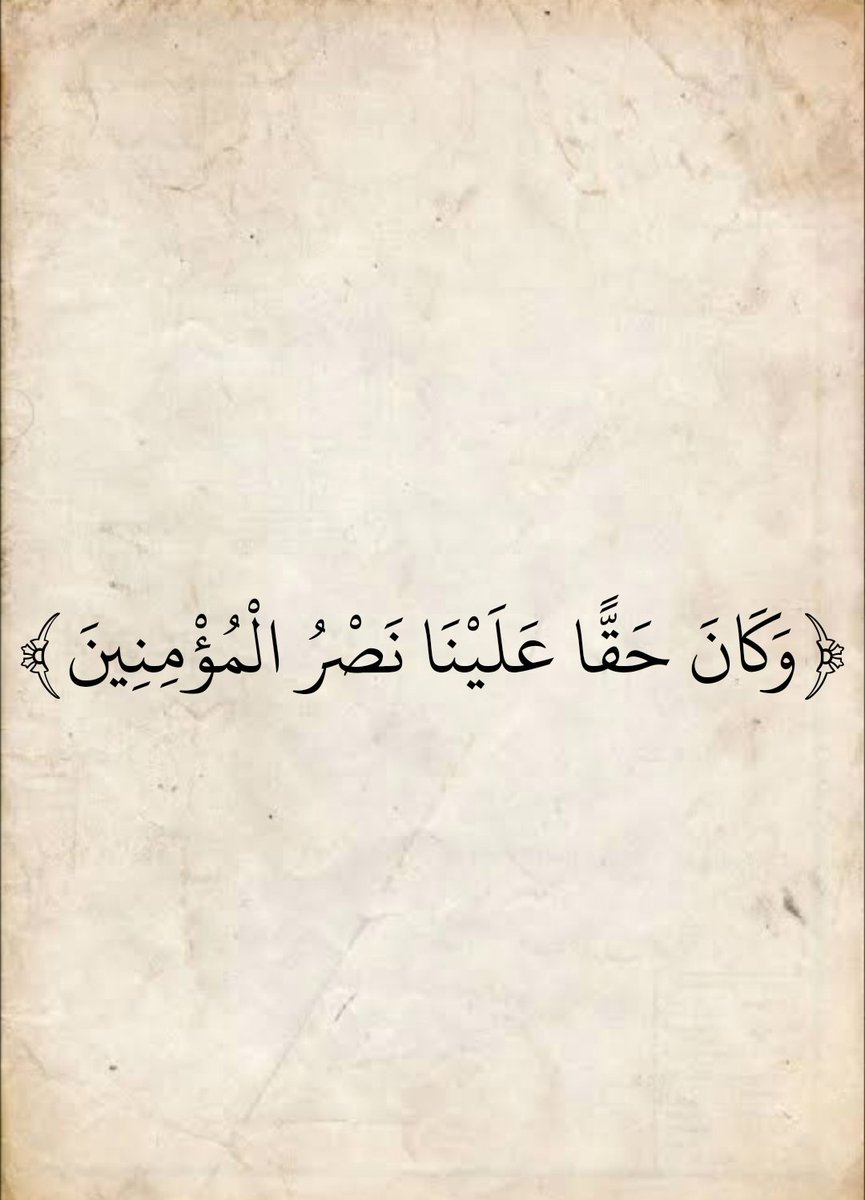 ﴿وَكَانَ حَقًّا عَلَيْنَا نَصْرُ الْمُؤْمِنِينَ﴾